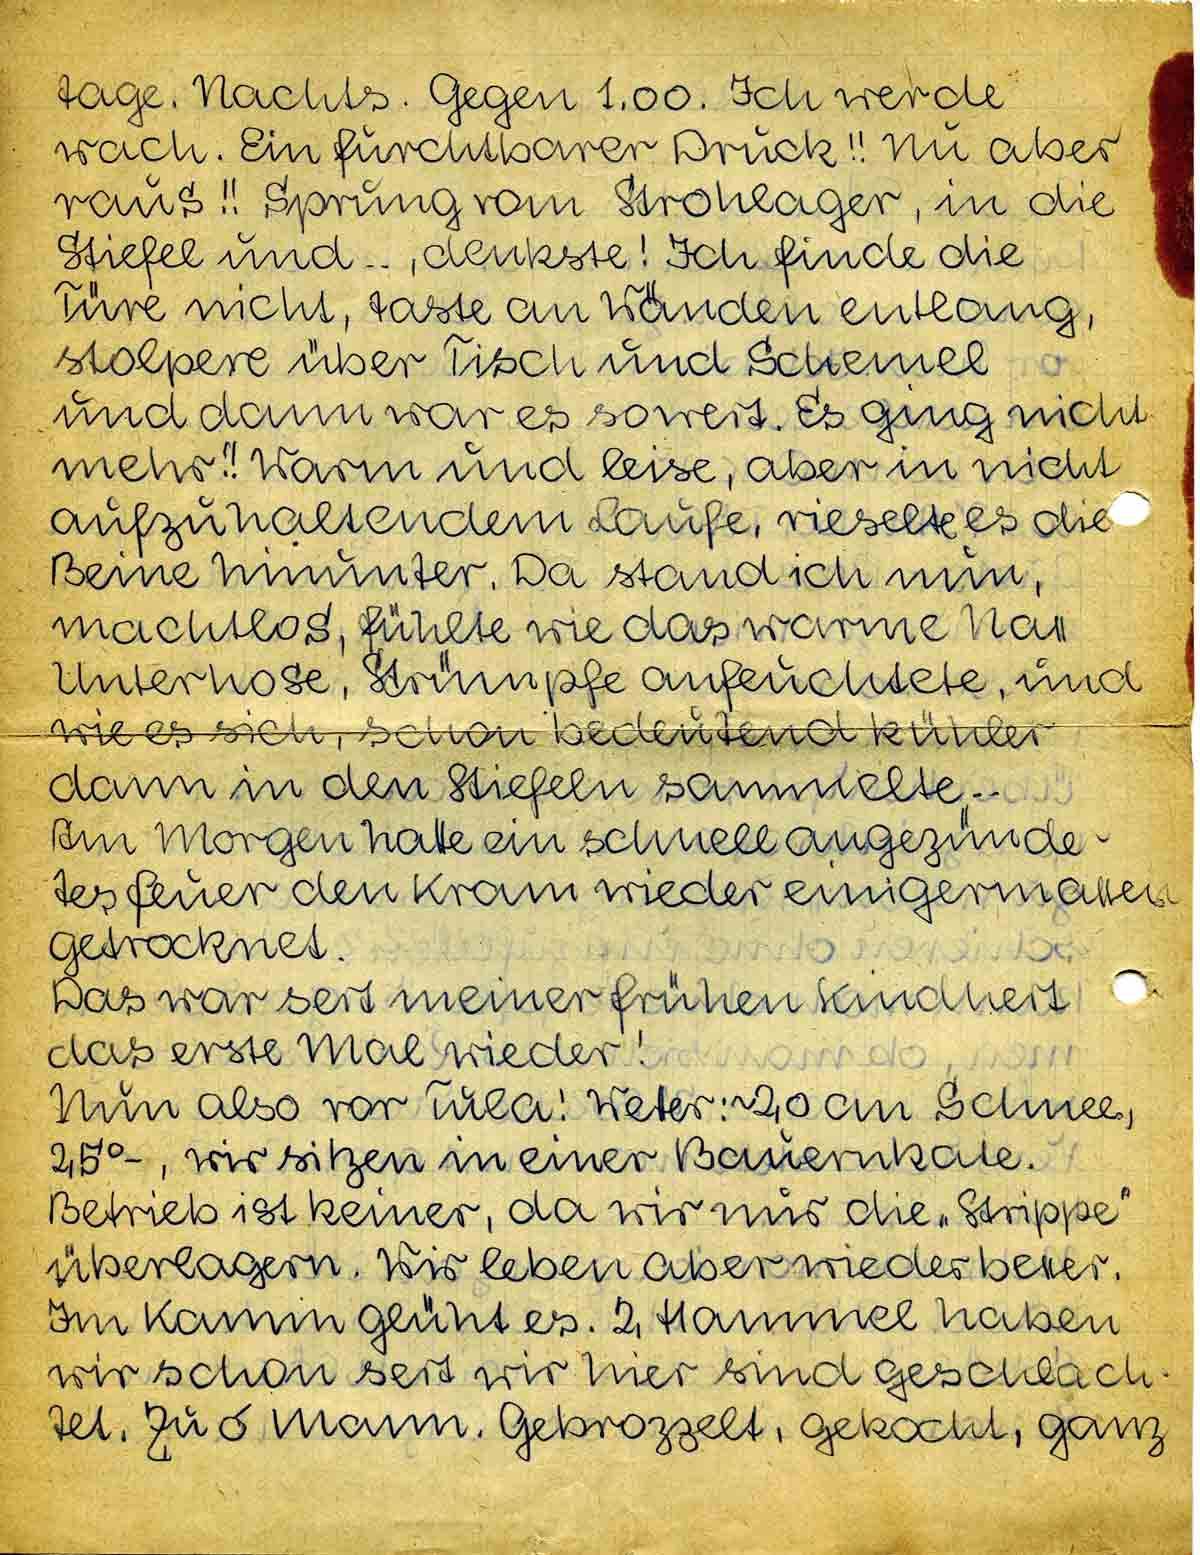 tage. Nachts. Gegen 1.00. Ich werde
wach. Ein furchtbarer Druck!! Nu aber
raus!! Sprung vom Strohlager, in die
Stiefel und .. , denkste! Ich finde die
Türe nicht, taste an Wänden entlang,
stolpere über Tisch und Schemel
und dann war es soweit. Es ging nicht
mehr!! Warm und leise, aber in nicht
aufzuhaltendem Laufe, rieselte es die
Beine hinunter. Da stand ich nun,
machtlos, fühlte wie das warme Naß
Unterhose, Strümpfe anfeuchtete, und
wie es sich, schon bedeutend kühler
dann in den Stiefeln sammelte..
Am Morgen hatte ein schnell angezünde-
tes feuer den Kram wieder einigermaßen
getrocknet.
Das war seit meiner frühen Kindheit
das erste Mal wieder!
Nun also vor Tula! Wetter: ~20 cm Schnee,
25°-, wir sitzen in einer Bauernkate.
Betrieb ist keiner, da wir nur die „Strippe"
überlagern. Wir leben aber wieder besser.
Im Kamin glüht es. 2 Hammel haben
wir schon seit wir hier sind geschlach-
tet. Zu 6 Mann. Gebrozzelt, gekocht, ganz